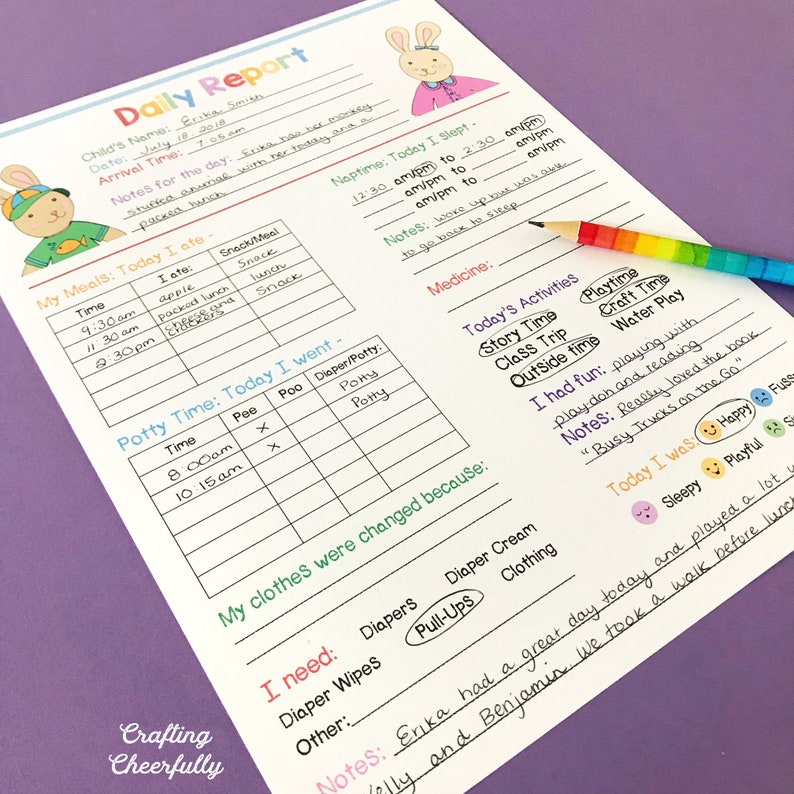 Daily Report
Child's Name: Erika Smith
Date: July 18, 2018
Arrival Time: 7:05am
Notes for the day: Erika has her monkey
stuffed animal with her today and a
packed lunch.
My Meals: Today I ate -
Time I ate: Snack/Meal
9:30am apple Snack
11:30am packed lunch lunch
2:30pm cheese and crackers Snack
Potty Time: Today I went -
Time Pee Poo Diaper/Potty:
8:00am x Potty
10:15am x Potty
My clothes were changed because:
I need: Diapers Diaper Cream
Diaper Wipes Pull-Ups Clothing
Other:
Naptime: Today I slept -
12:30 am/pm to 2:30 am/pm
am/pm to am/pm
am/pm to am/pm
Notes: woke up but was able
to go back to sleep
Medicine:
Today's Activities
Story Time Playtime
Class Trip Craft Time
Outside time Water Play
I had fun: playing with
playdoh and reading
Notes: Really loved the book
"Busy Trucks on the Go"
Today I was: Happy Fuss
Sleepy Playful Si
Notes: Erika had a great day today and played a lot
elly and Benjamin. We took a walk before lunch
Crafting
Cheerfully